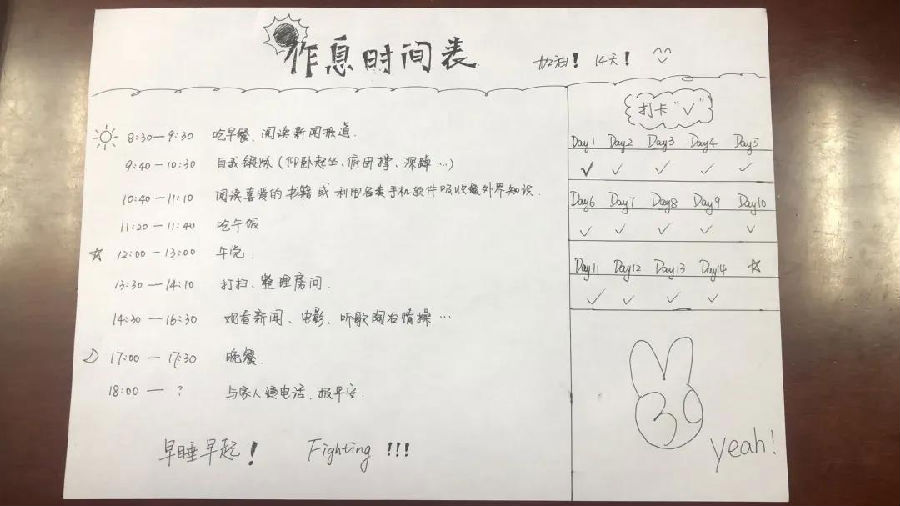 作息时间表
加油! 14天!
8:30—9:30 吃早餐、阅读新闻报道.
9:40—10:30 自我锻炼(仰卧起坐、俯卧撑、深蹲…)
10:40—11:10 阅读喜爱的书籍或利用各类手机软件吸收最外界知识.
11:20—11:40 吃午饭
☆ 12:00—13:00 午觉.
13:30—14:10 打扫、整理房间.
14:30—16:30 观看新闻、电影、听歌陶冶情操…
17:00—17:30 晚餐
18:00—? 与家人通电话、报平安.
早睡早起! Fighting!!!
打卡"√"
Day1 Day2 Day3 Day4 Day5
✓ ✓ ✓ ✓ ✓
Day6 Day7 Day8 Day9 Day10
✓ ✓ ✓ ✓ ✓
Day11 Day12 Day13 Day14 ☆
✓ ✓ ✓ ✓
yeah!